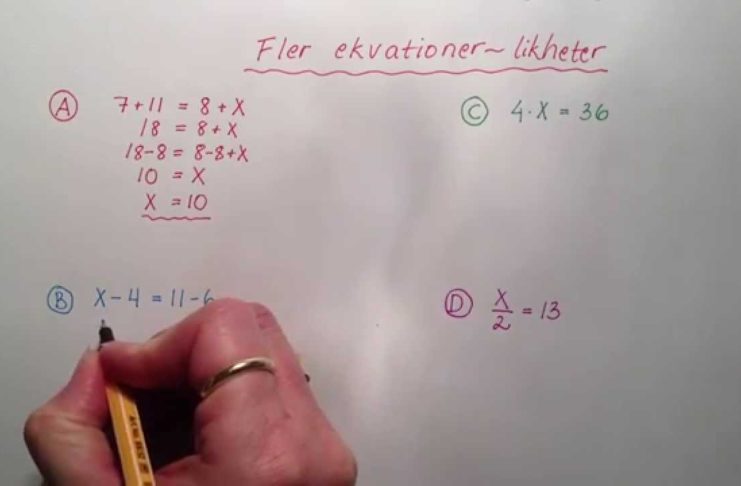 Fler ekvationer~likheter
A 7+11 = 8+X
18 = 8+X
18-8 = 8-8+X
10 = X
X = 10
B X-4 = 11-6
C 4·X = 36
D X/2 = 13